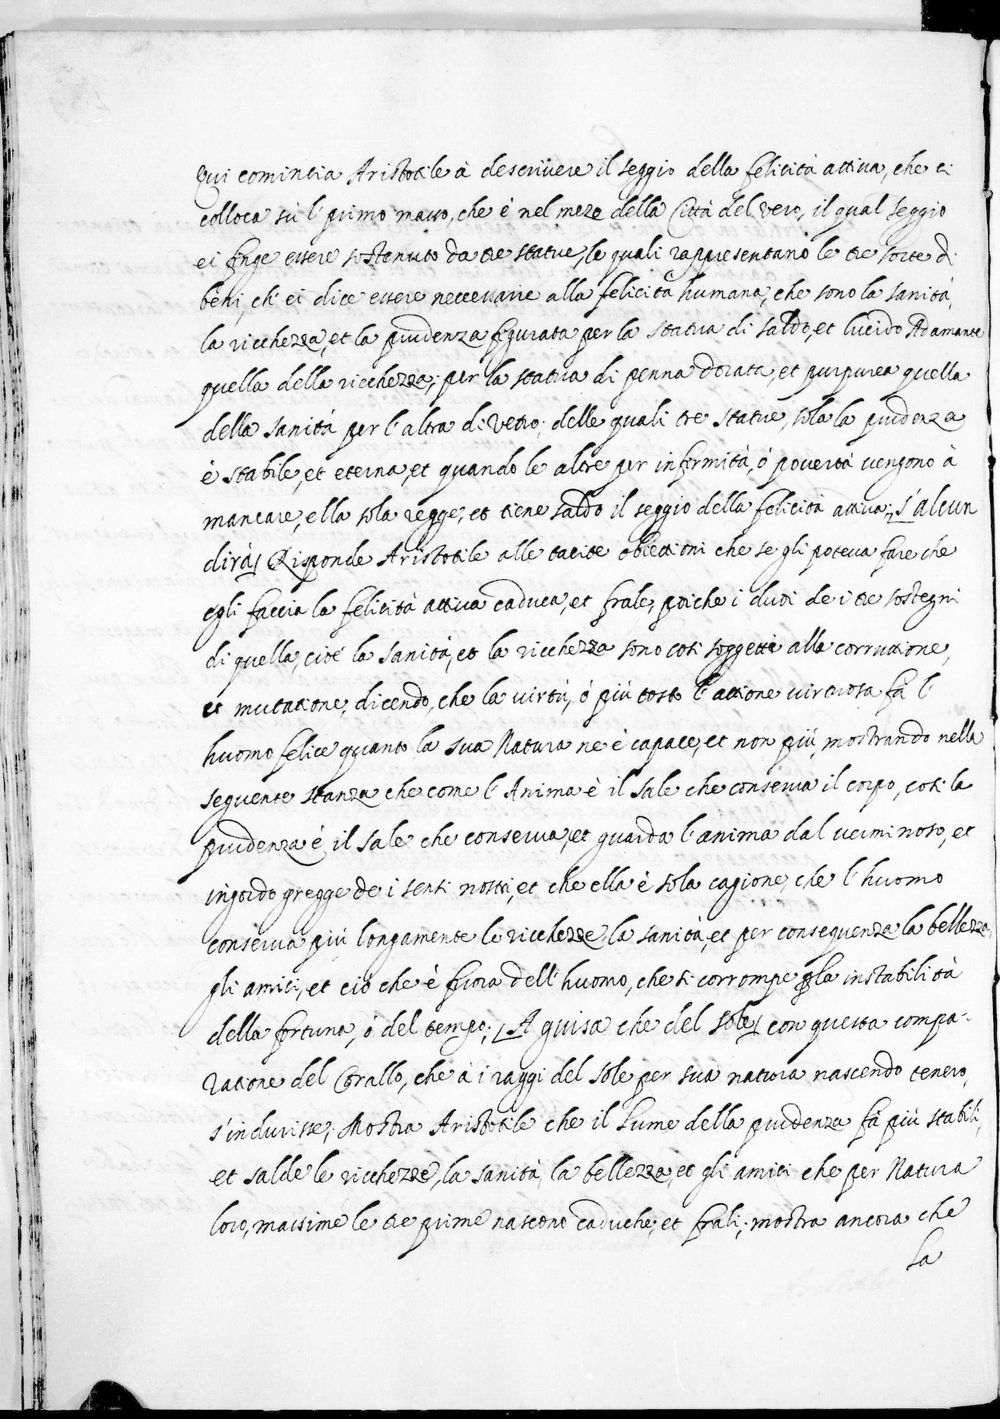 Qui comincia Aristotile à descrivere il seggio della felicità attiva, che ei
colloca sù l' primo masso, che è nel mezo della Città del vero, il qual seggio
ei finge essere sostenuto da tre statue, le quali rappresentano le tre sorte di
beni, ch' ei dice essere necessarie alla felicità humana, che sono la sanità,
la ricchezza, et la prudenza figurata per la statua di saldo, et lucido Adamante
quella della ricchezza; per la statua di penna dorata, et purpurea quella
della sanità per l' altra di Vetro; delle quali tre statue, sola la prudenza
è stabile, et eterna, et quando le altre per infermità, ó povertà vengono à
mancare, ella sola regge, et tiene saldo il seggio della felicità attiva; s' alcun
dirà/ Risponde Aristotile alle tacite obiettioni che se gli poteva fare che
egli faccia la felicità attiva caduca, et frale, poiche i dudi de i tre sostegni
di quella, cioè la sanità, et la ricchezza sono cosi soggetti alla corruttione,
et mutatione, dicendo, che la virtù, ó più tosto l' attione virtuosa fà l'
huomo felice quanto la sua Natura ne è capace, et non più, mostrando nella
seguente stanza che come l' Anima è il sale che conserva il corpo, cosi la
prudenza è il sale che conserva, et guarda l' anima dal verminoso, et
ingordo gregge de i sensi nostri, et che ella è sola cagione, che l' huomo
conserva più longamente le ricchezze, la sanità, et per conseguenza la bellezza,
gli amici, et ciò che è fuora dell' huomo, che si corrompe p la instabilità
della fortuna, ó del tempo; /A guisa che del sole/ con questa compa-
ratione del Corallo, che à i raggi del sole per sua natura nascendo tenero,
s' indurisse; Mostra Aristotile che il lume della prudenza fà più stabili,
et salde le ricchezze, la sanità, la bellezza, et gli amici che per Natura
loro, massime le tre prime nascono caduche, et frali; mostra ancora che
la